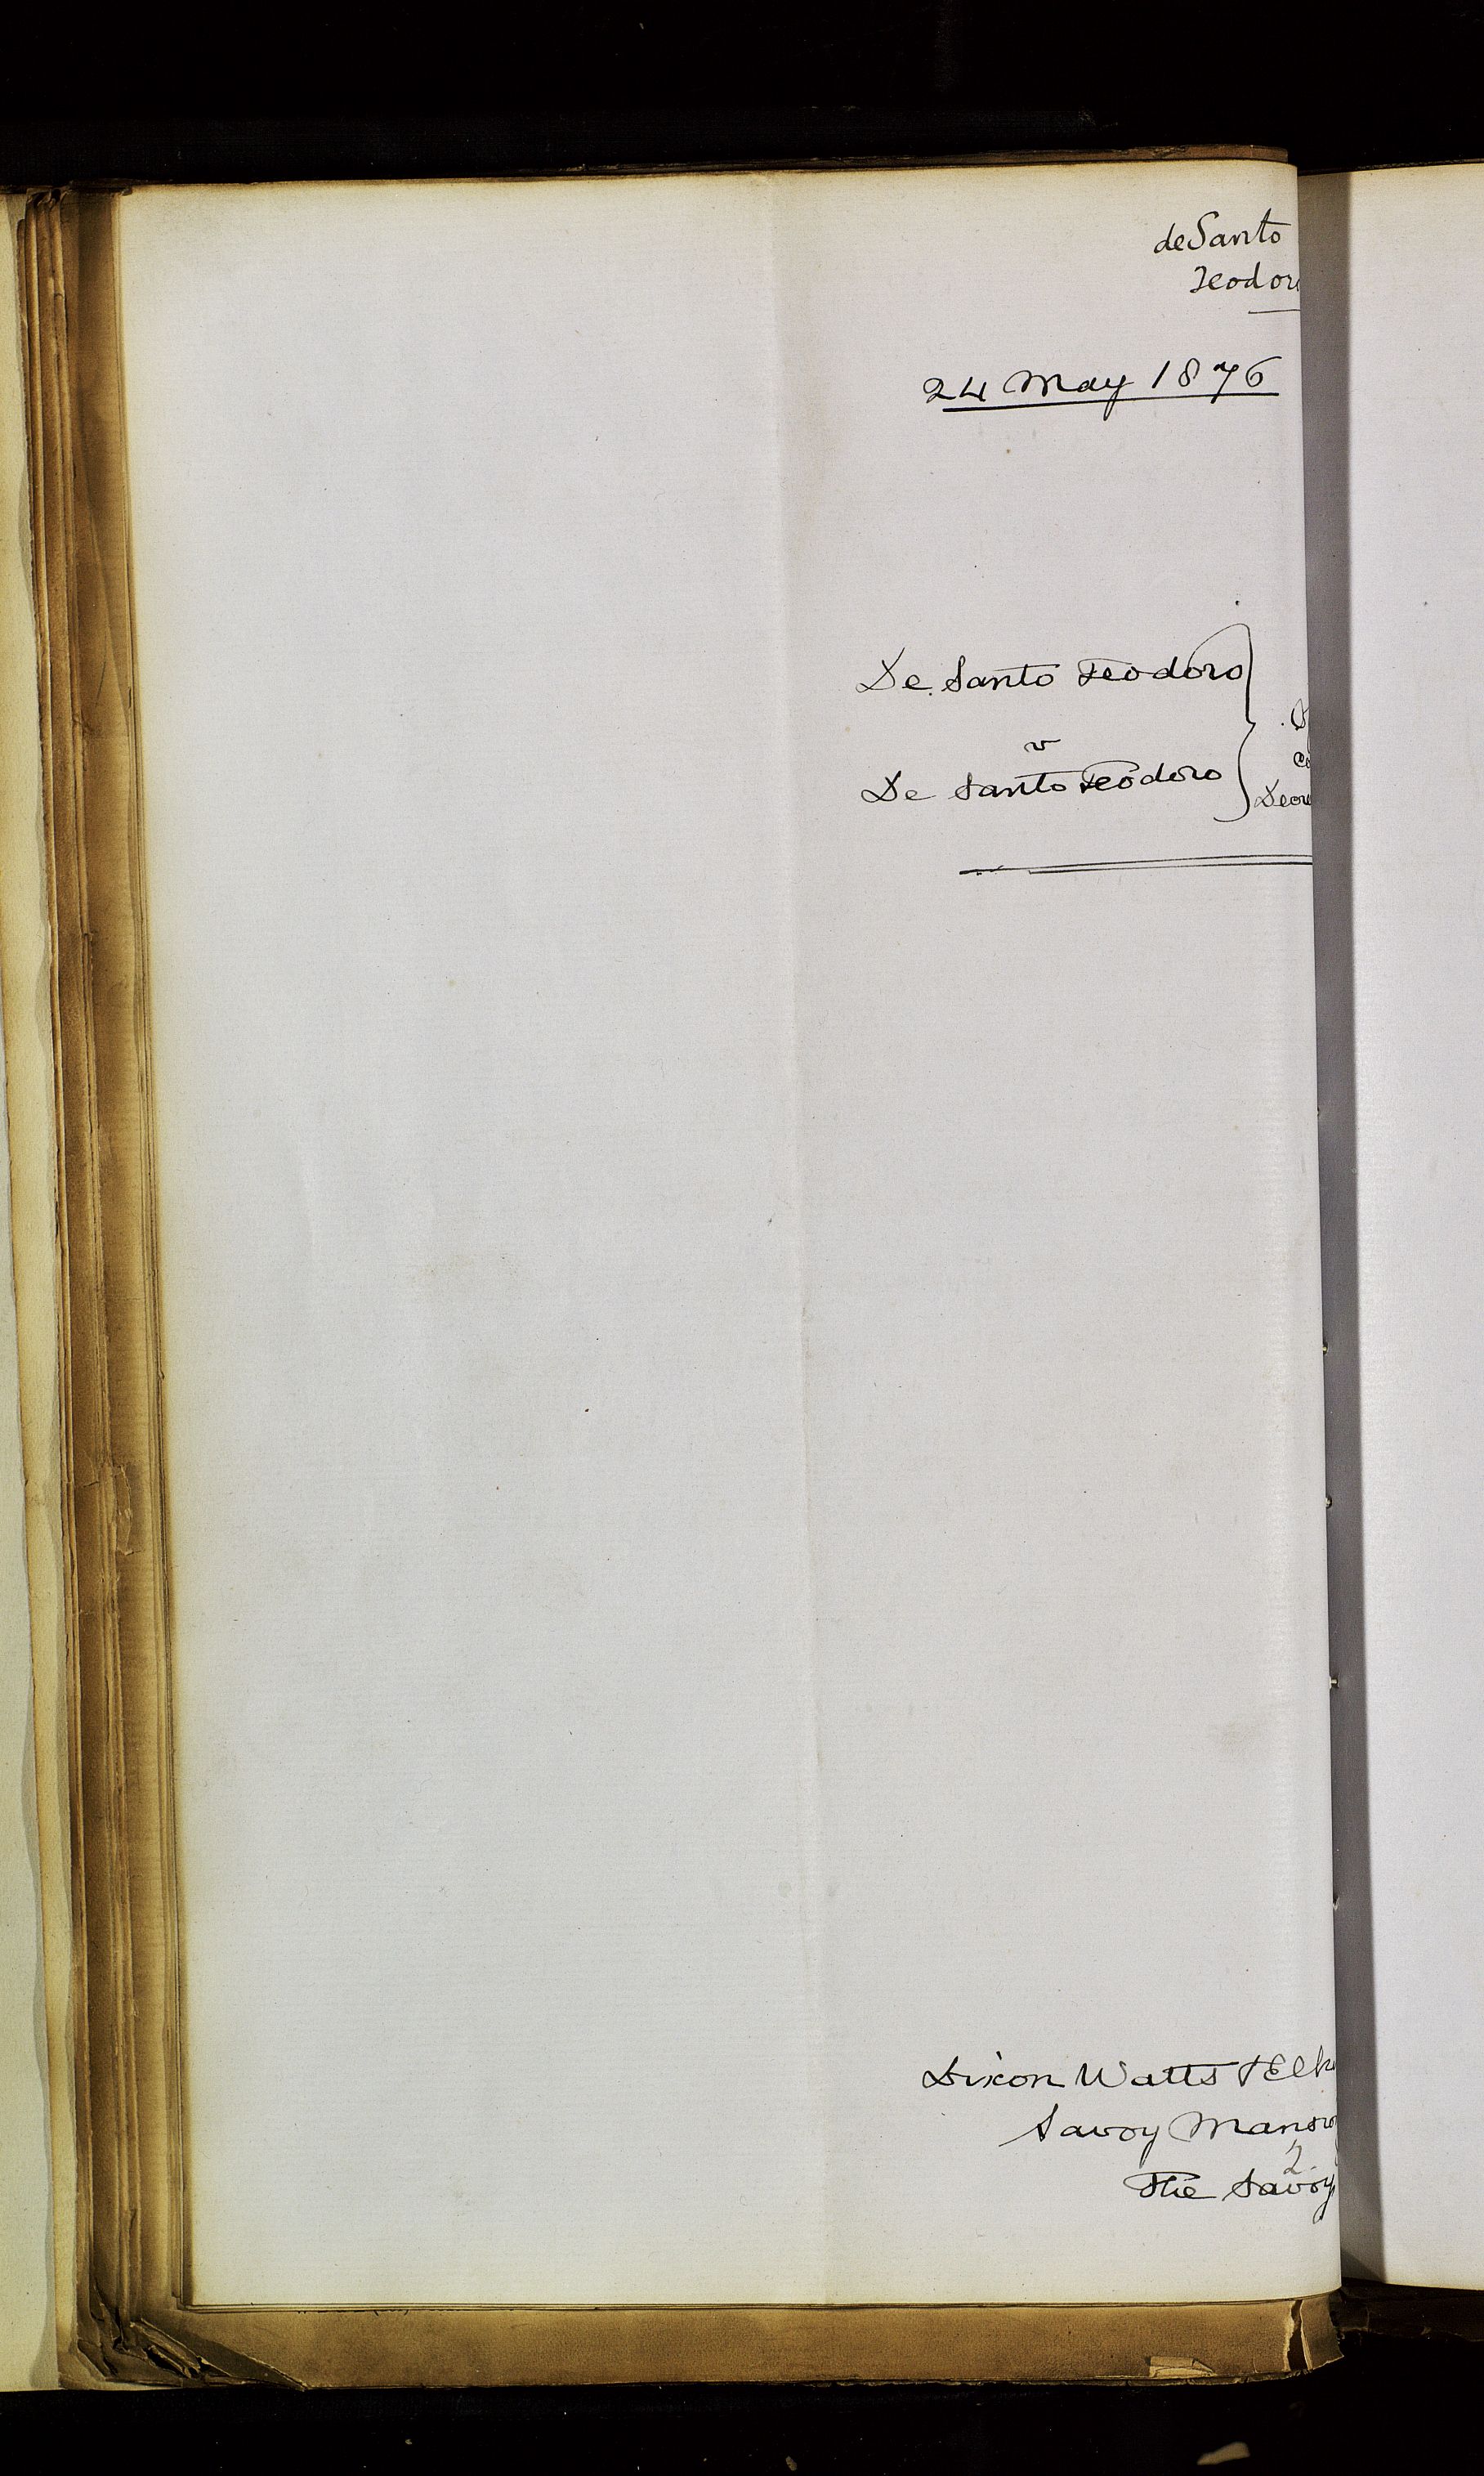 de Santo
Teodor
24 May 1876
De Santo Teodoro
v
De Santo Teodoro
Decre
Dixon Watts & Elk
Savoy Mansio
2
The Savoy